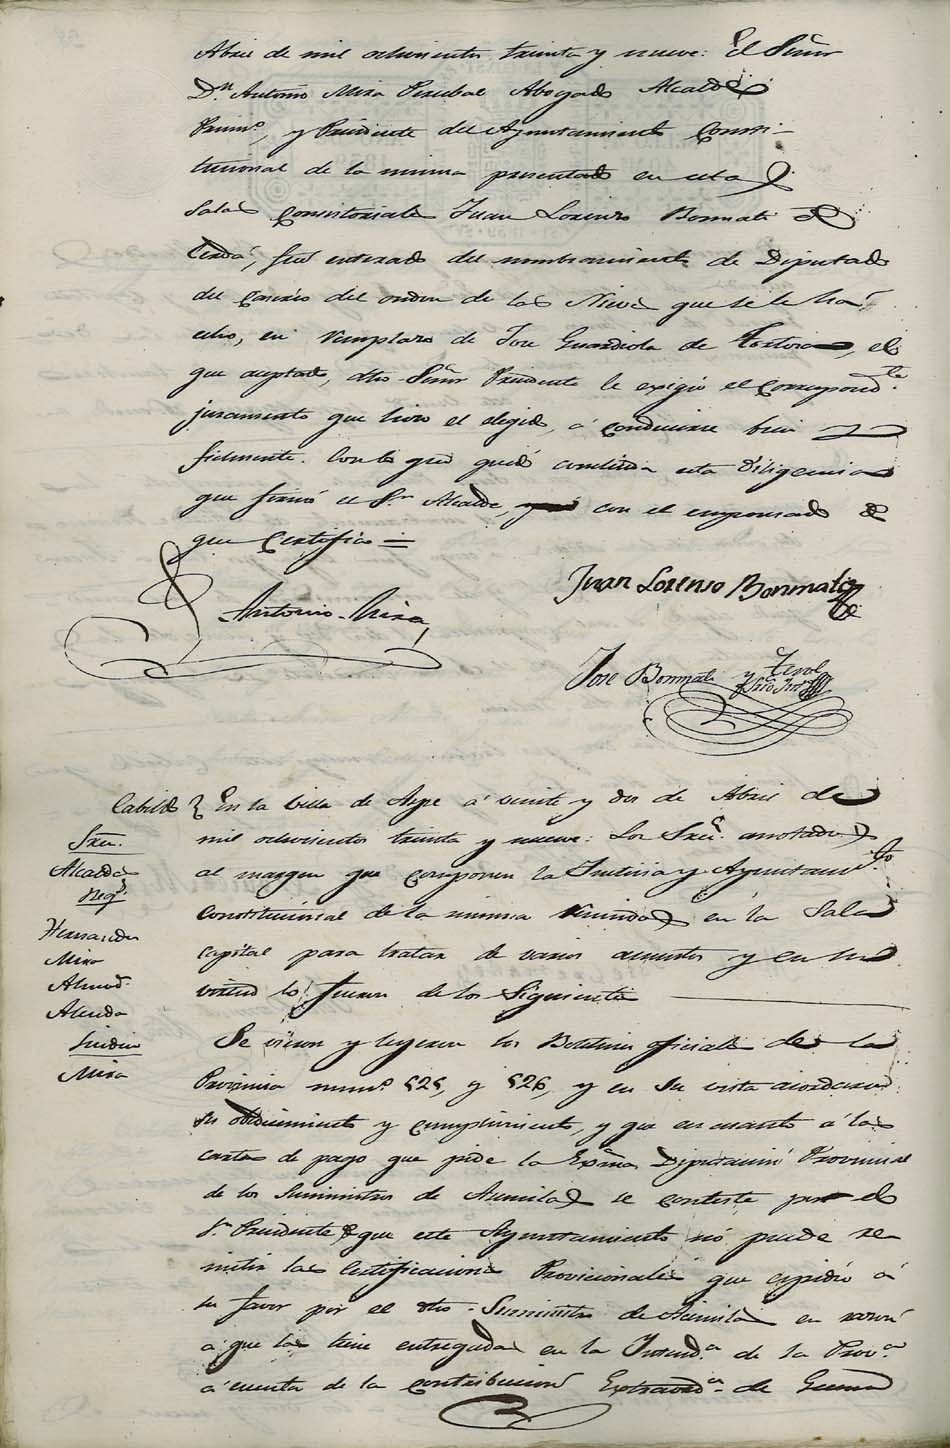 Abril de mil ochocientos treinta y nueve: El Señor
Dn. Antonio Mira Percebal Abogado Alcalde
Primo. y Presidente del Ayuntamiento Consti-
tucional de la misma presentado en esta
Sala Consistorial Juan Lorenzo Bonmati de
Cerdá, fue enterado del nombramiento de Diputado
del Caserio del ondon de las Nieves que se le há
echo, en reemplazo de Jose Guardiola de, el
que aceptado, dho Señor Presidente le exigió el correspondte.
juramento que hizo el elegido, á conducirse bien y
fielmente. Con lo que quedó concluida esta diligencia
que firmó el Sr. Alcalde, con el emposesado de
que Certifico =
Antonio Mira
Juan Lorenso Bonmati
Jose Bonmati y Terol
Srio Into
Cabildo } En la Villa de Aspe á veinte y dos de Abril de
mil ochocientos treinta y nueve: Los Sres. anotados
al margen que componen la Justicia y Ayuntamto.
constitucional de la misma reunidos en la Sala
capital para tratar de varios asuntos y en su
virtud lo fueron de los Siguientes
Sres.
Alcalde
Regs.
Hernandez
Mira
Almod.
Alcolea
Sindico
Mira
Se vieron y leyeron los Boletines oficiales de la
Provincia nums. 525, y 526, y en su vista acordaron
su obedecimiento y cumplimiento, y que en cuanto á las
cartas de pago que pide la Exma. Diputacion Provincial
de los Suministros de se conteste por el
Sr. Presidente, que este Ayuntamiento nó puede re-
mitir las Certificaciones Provicionales que expidió á
su favor por el dho Suministro de en razon
á que las tiene entregadas en la Intenda. de la Prova.
á cuenta de la contribucion Extraorda. de Guerra